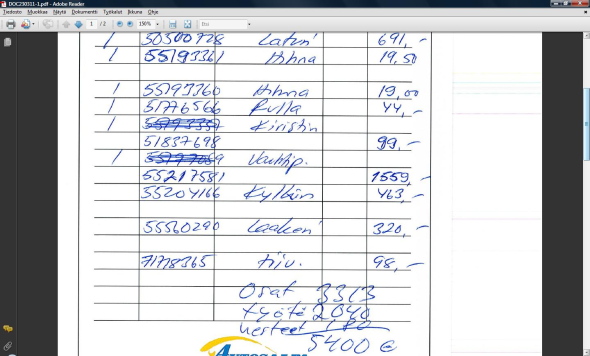 DOC230311-1.pdf - Adobe Reader
Tiedosto Muokkaa Näytä Dokumentti Työkalut Ikkuna Ohje
1 / 2 150% Etsi
1 50300728 Laturi 691,-
1 55193361 Hihna 19,50
1 55193360 Hihna 19,00
1 51776566 Rulla 44,-
1 55793357 Kiristin
51837698 99,-
1
55217581 1559,-
55204166 463,-
55560290 320,-
71778365 Tiiv. 98,-
Osat 3313
työtä 2040
nesteet
5400 €